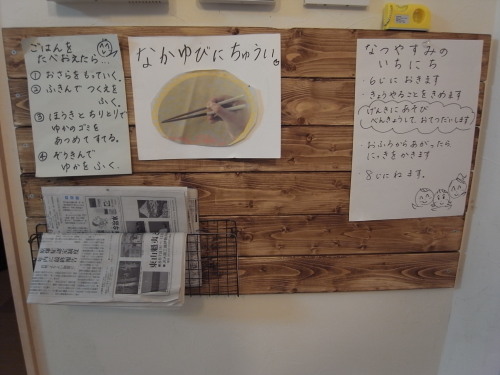 ごはんを
たべおえたら…
① おさらをもっていく。
② ふきんで つくえを
ふく。
③ ほうきとちりとりで
ゆかのゴミを
あつめてすてる。
④ ぞうきんで
ゆかを ふく。
なかゆびにちゅうい。
なつやすみの
いちにち
・6じに おきます
・きょうやることを きめます
げんきにあそび
べんきょうして、おてつだいします
・おふろからあがったら
にっきをかきます
・8じにねます。
東山魁夷